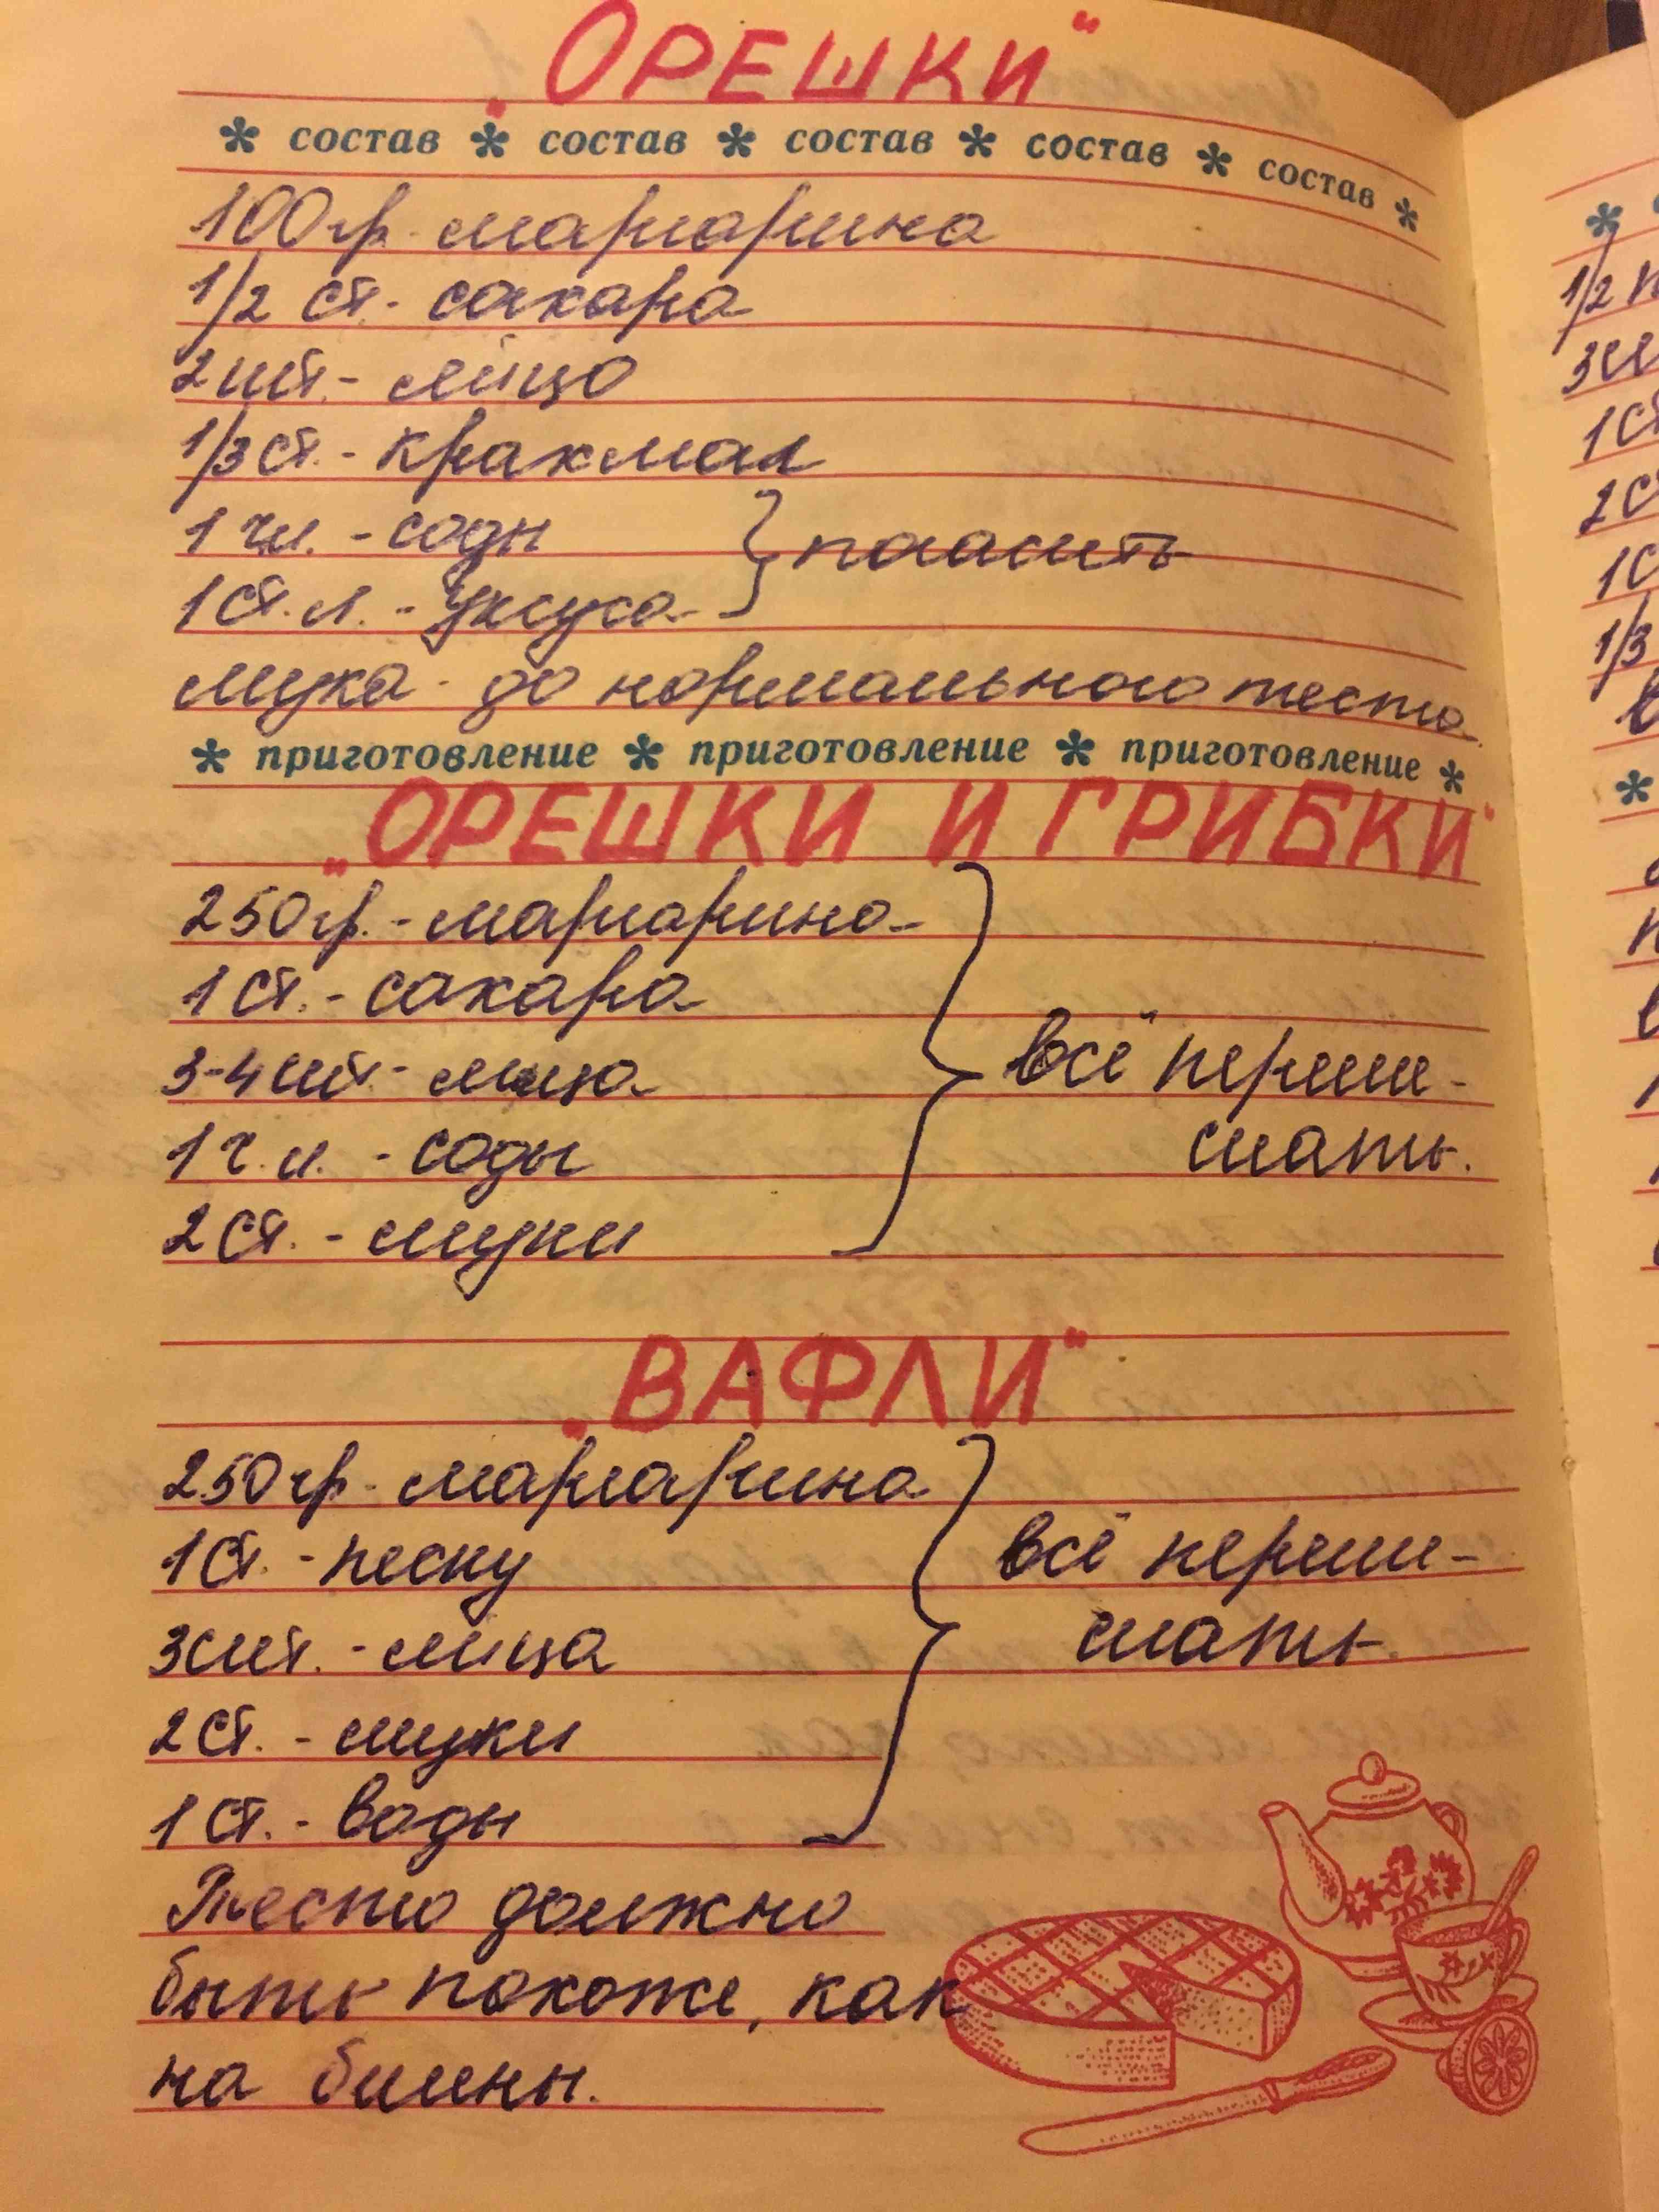 „ОРЕШКИ“
* состав * состав * состав * состав * состав *
100гр. маргарина
1/2 ст. - сахара
2 шт. - яйцо
1/3 ст. - крахмал
1 ч.л. - соды } погасить
1 ст.л. - уксуса
мука - до нормального теста.
* приготовление * приготовление * приготовление *
„ОРЕШКИ И ГРИБКИ“
250гр. - маргарина
1 ст. - сахара
3-4 шт. - яйца
1 ч.л. - соды
2 ст. - муки
всё переме-
шать.
„ВАФЛИ“
250гр. маргарина
1 ст. - песку
3 шт. - яйца
2 ст. - муки
1 ст. - воды
всё переме-
шать.
Тесто должно
быть похоже, как
на блины.
1/2
1ст
2с
1с
1/3